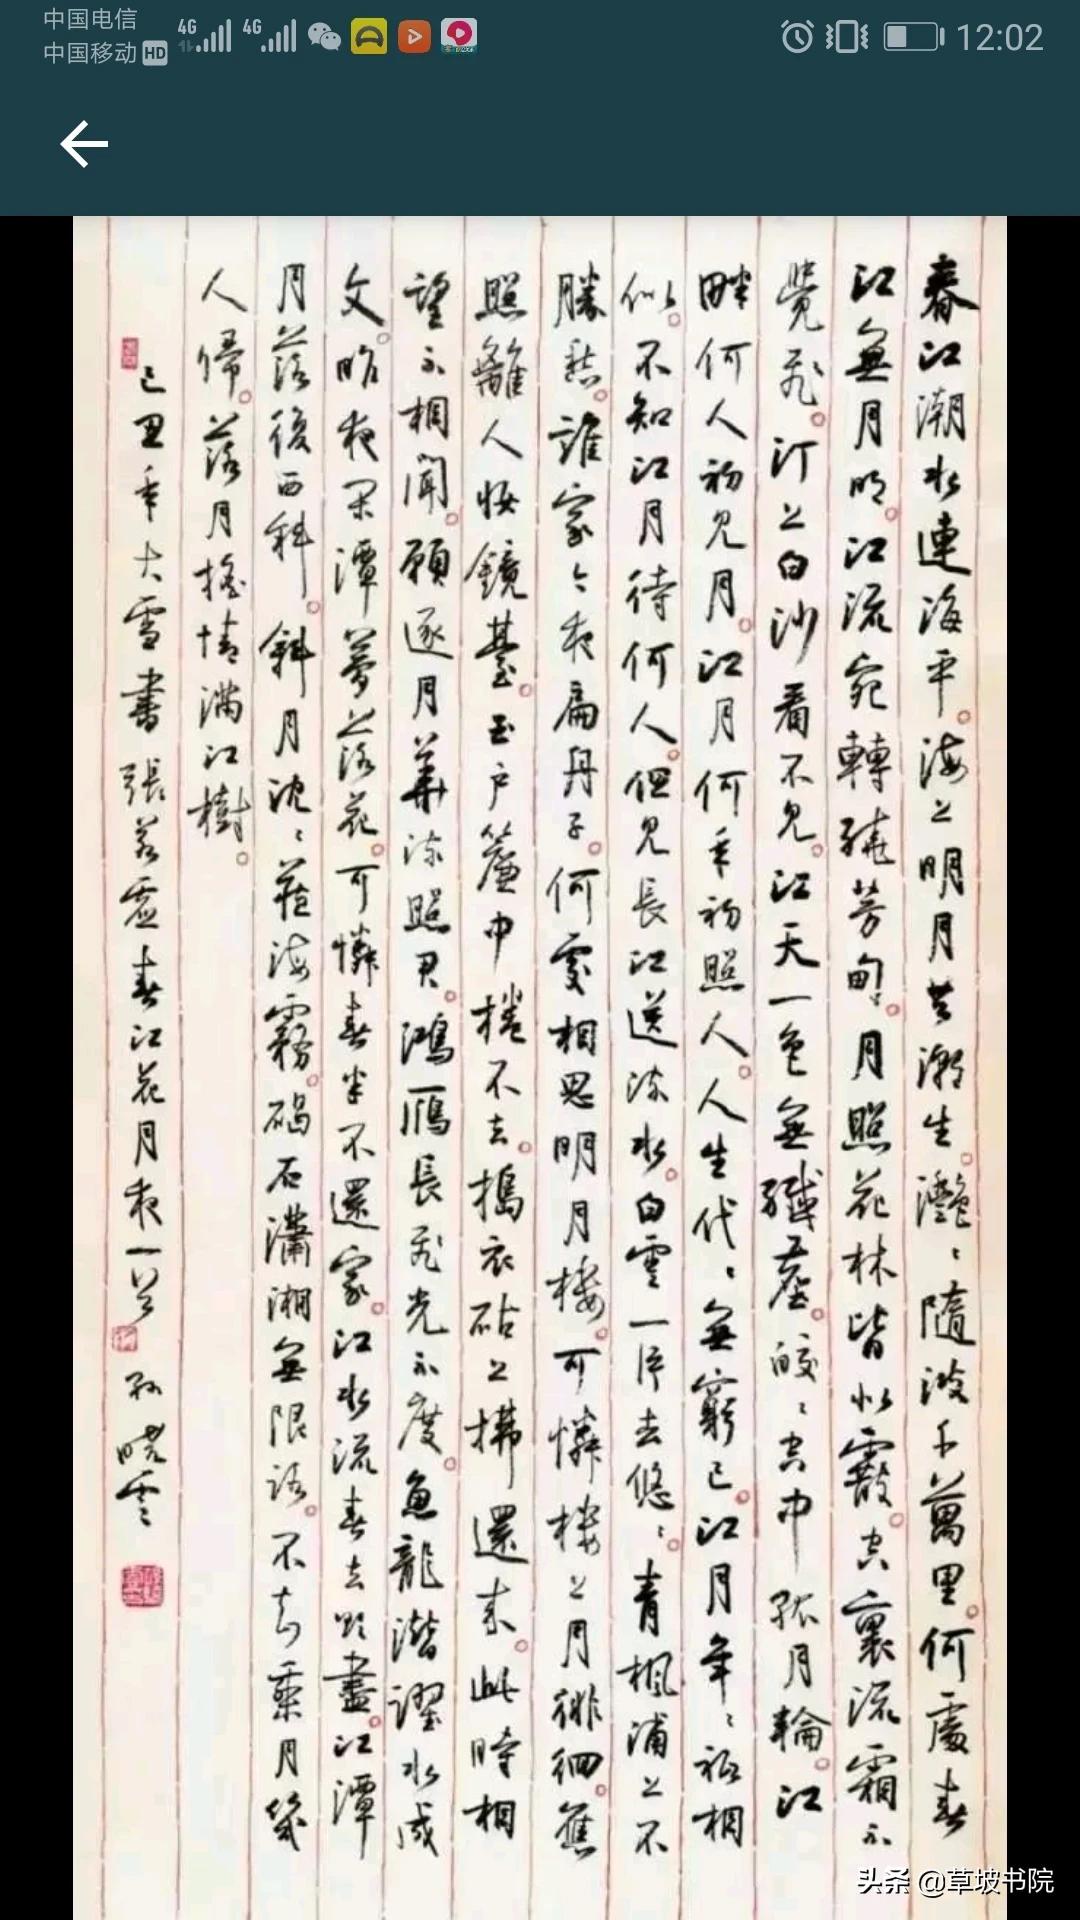 中国电信
中国移动 HD 4G 4G 12:02
春江潮水連海平。海上明月共潮生。灧〻隨波千萬里。何處春
江無月明。江流宛轉繞芳甸。月照花林皆似霰。空裏流霜不
覺飛。汀上白沙看不見。江天一色無纖塵。皎〻空中孤月輪。江
畔何人初見月。江月何年初照人。人生代〻無窮已。江月年〻祗相
似。不知江月待何人。但見長江送流水。白雲一片去悠〻。青楓浦上不
勝愁。誰家今夜扁舟子。何處相思明月樓。可憐樓上月徘徊。應
照離人妝鏡臺。玉户簾中捲不去。搗衣砧上拂還来。此時相
望不相聞。願逐月華流照君。鴻雁長飛光不度。魚龍潛躍水成
文。昨夜閑潭夢落花。可憐春半不還家。江水流春去欲盡。江潭
月落後西斜。斜月沈〻藏海霧。碣石瀟湘無限路。不知乘月幾
人歸。落月搖情滿江樹。
己丑年大雪書張若虛春江花月夜一首 孫曉雲
头条 @草坡书院